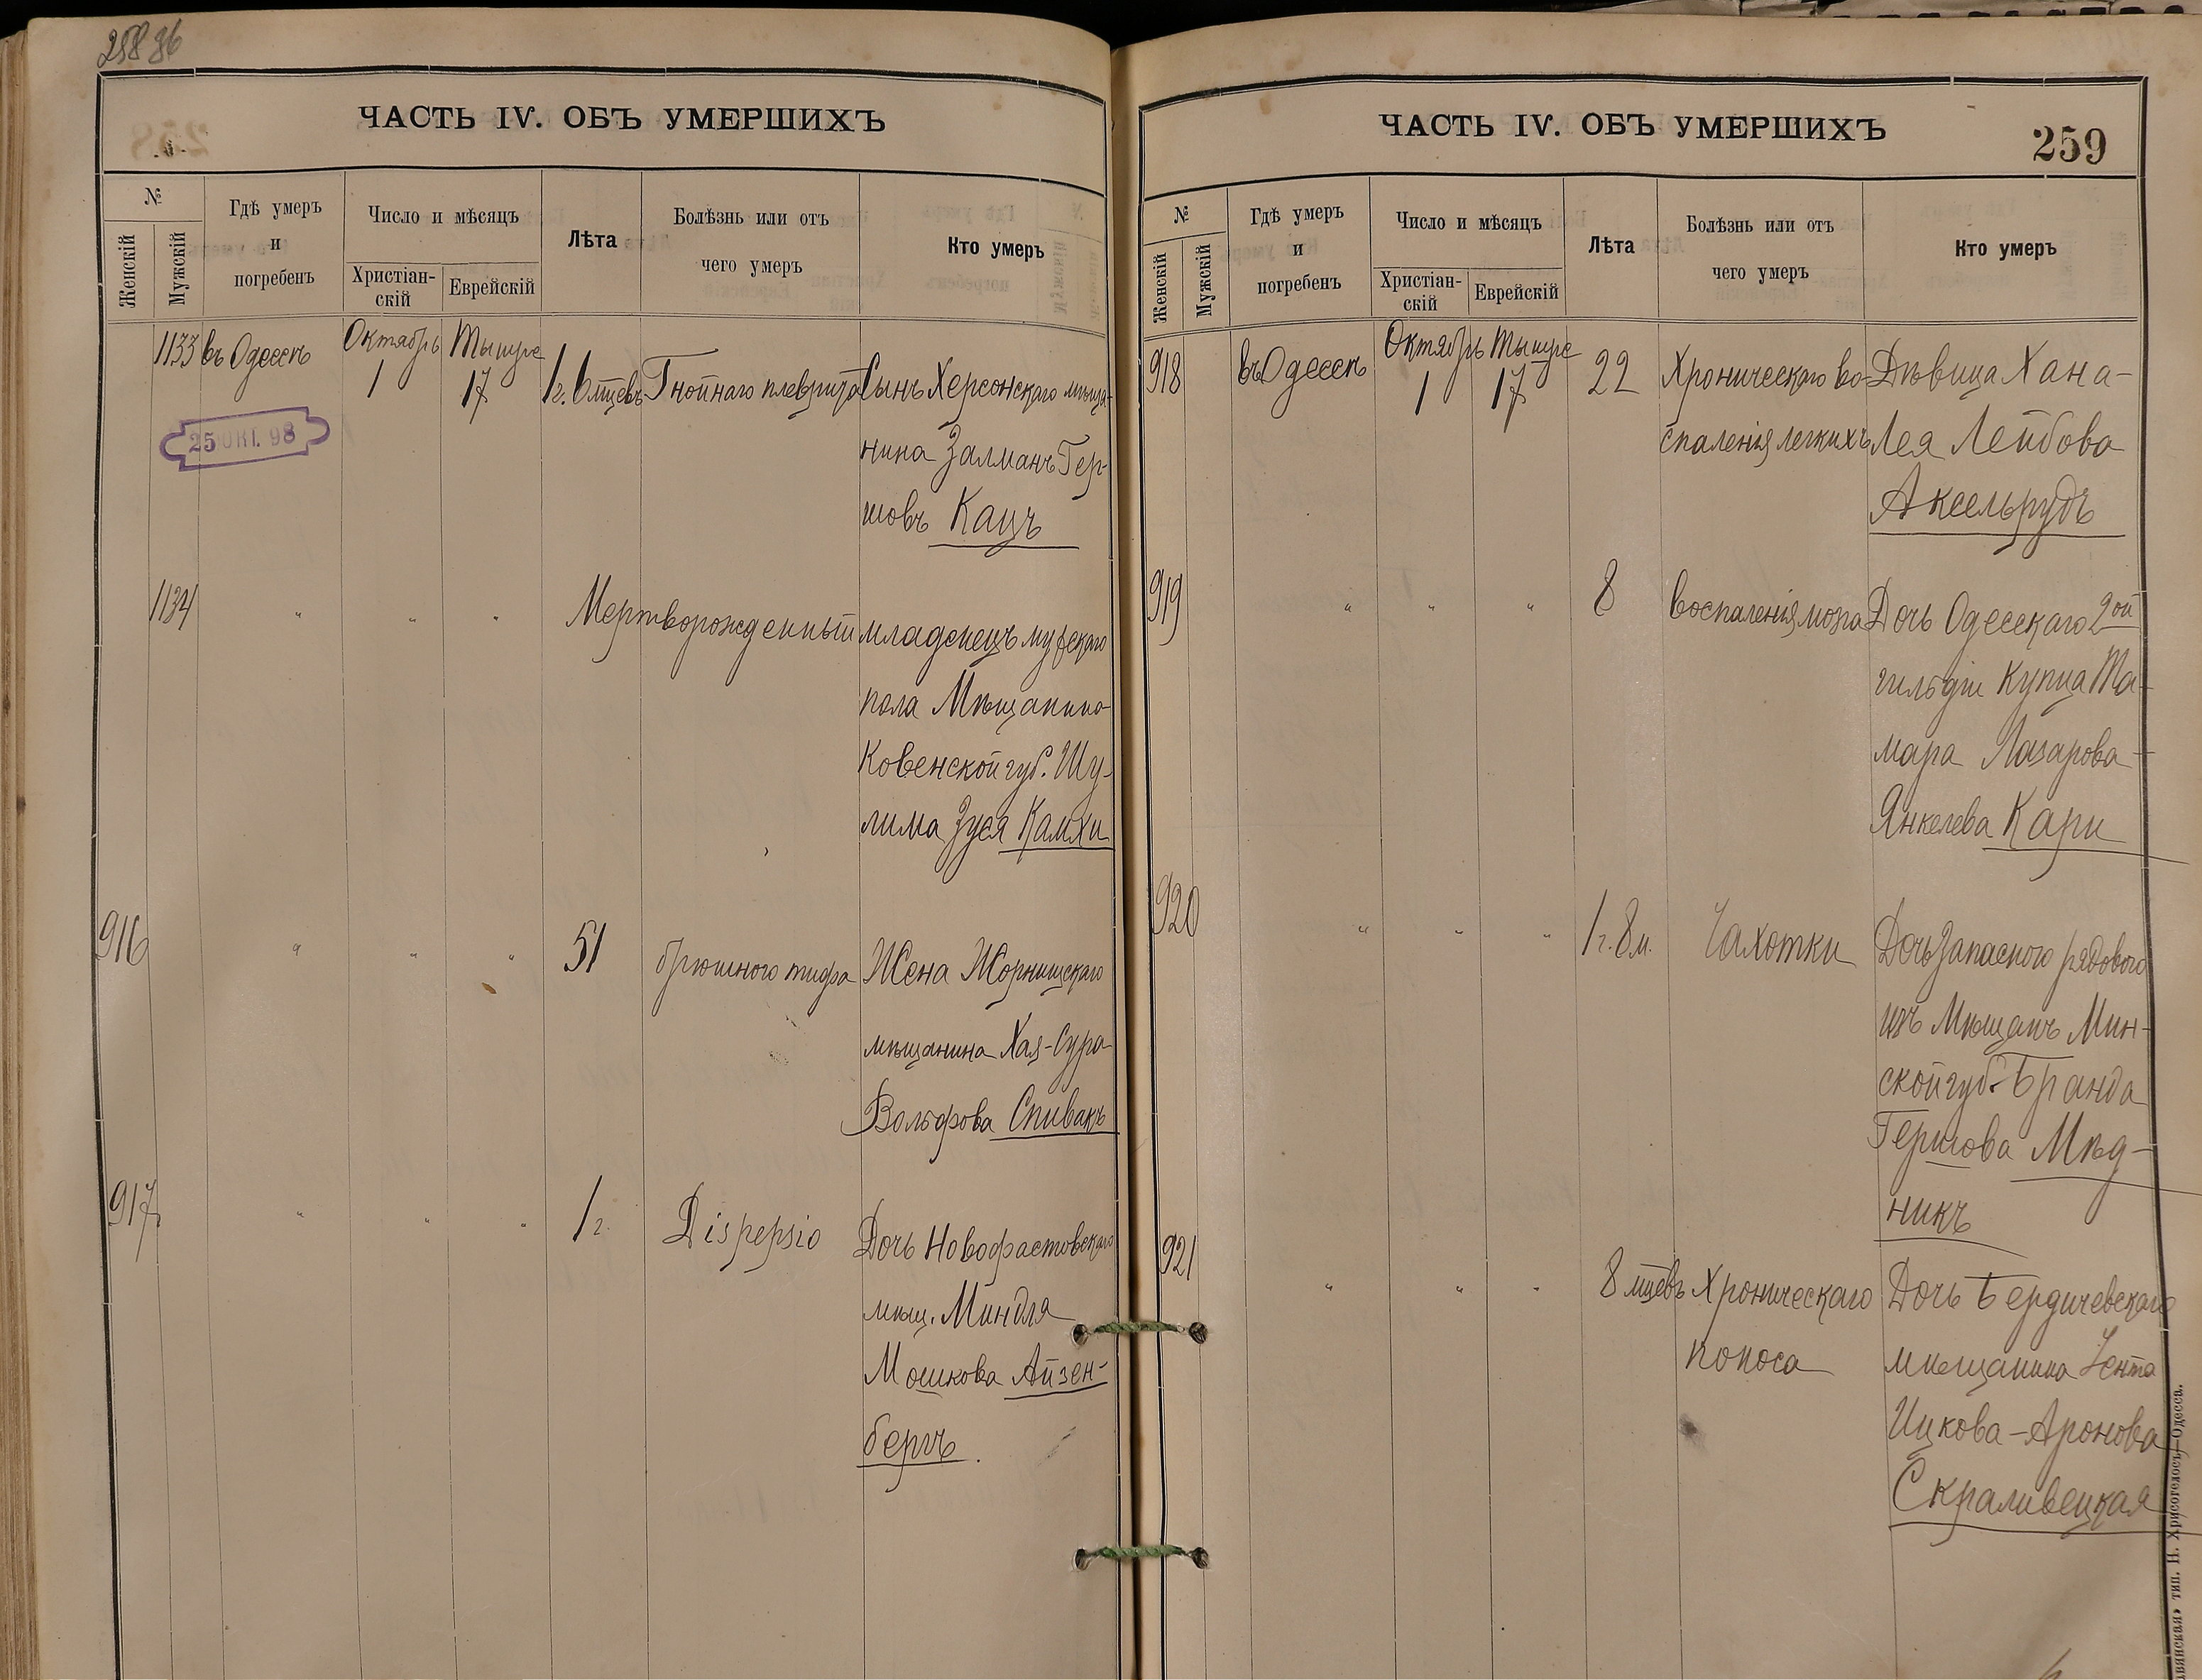 258 86
ЧАСТЬ IV. ОБЪ УМЕРШИХЪ
№
Женскій
Мужскій
Гдѣ умеръ
и
погребенъ
Число и мѣсяцъ
Христіан-
скій
Еврейскій
Лѣта
Болѣзнь или отъ
чего умеръ
Кто умеръ
1133 въ Одессѣ Октябрь 1 Тышре 17 1 г. 6 мцевъ Гнойнаго плеврита Сынъ Херсонскаго мѣща-
нина Залманъ Гер-
шовъ Кацъ
25 ОКТ. 98
1134 " " " Мертворожденный младенецъ мужскаго
пола Мѣщанина
Ковенской губ. Шу-
лима Зуся Камхи
916 " " " 51 брюшного тифа Жена Жорнищскаго
мѣщанина Хая-Сура
Вольфова Спивакъ
917 " " " 1 г. Dispepsio Дочь Новофастовскаго
мѣщ. Миндля
Мошкова Айзен-
бергъ
ЧАСТЬ IV. ОБЪ УМЕРШИХЪ
259
№
Женскій
Мужскій
Гдѣ умеръ
и
погребенъ
Число и мѣсяцъ
Христіан-
скій
Еврейскій
Лѣта
Болѣзнь или отъ
чего умеръ
Кто умеръ
918 въ Одессѣ Октябрь 1 Тышре 17 22 Хроническаго во- Дѣвица Хана-
спаленія легкихъ Лея Лейбова
Аксельрудъ
919 " " " 8 воспаленія мозга Дочь Одесскаго 2ой
гильдіи Купца Та-
мара Лазарова-
Янкелева Кари
920 " " " 1 г. 8 м. Чахотки Дочь Запасного рядового
изъ Мѣщанъ Мин-
ской губ. Бранда
Гершова Мѣд-
никъ
921 " " " 8 мцевъ Хроническаго Дочь Бердичевскаго
поноса мѣщанина Ента
Ицкова-Аронова
Скраливецкая
тип. Н. Хрисогелосъ, Одесса.